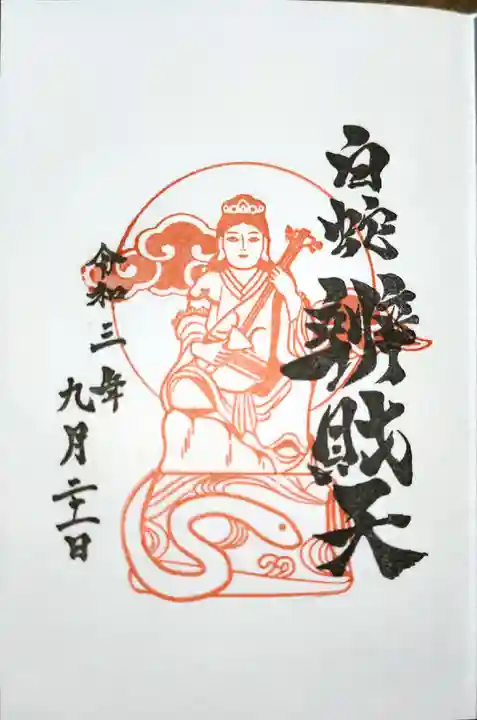 白蛇辨財天
令和三年九月二十一日